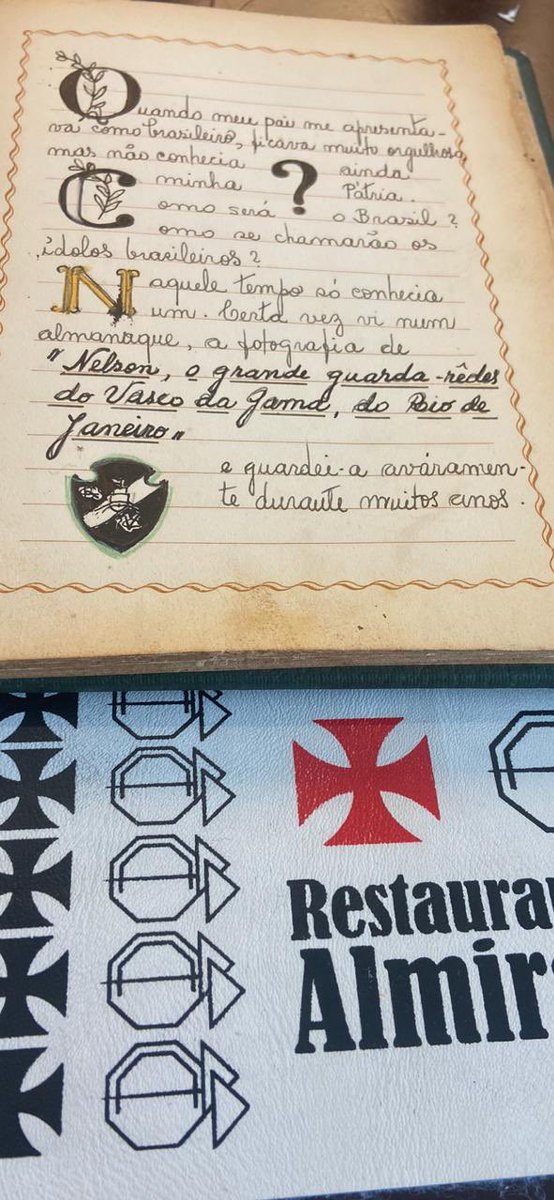 Quando meu pai me apresenta-
va como brasileiro, ficava muito orgulhoso,
mas não conhecia ainda
minha ? Pátria.
Como será o Brasil?
Como se chamarão os
ídolos brasileiros?
Naquele tempo só conhecia
um. Certa vez vi num
almanaque, a fotografia de
"Nelson, o grande guarda-rêdes
do Vasco da Gama, do Rio de
Janeiro"
e guardei-a aváramen-
te durante muitos anos.
Restaura
Almir